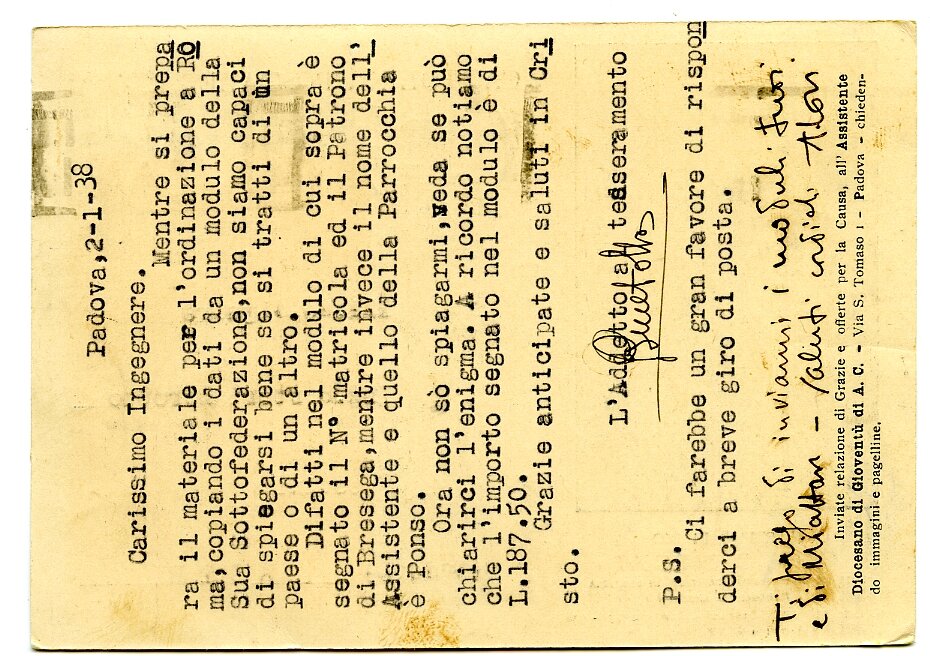 Padova,2-1-38
Carissimo Ingegnere.
Mentre si prepa
ra il materiale per l'ordinazione a Ro
ma,copiando i dati da un modulo della
Sua Sottofederazione,non siamo capaci
di spiegarsi bene se si tratti di un
paese o di un altro.
Difatti nel modulo di cui sopra è
segnato il N° matricola ed il Patrono
di Bresega,mentre invece il nome dell'
Assistente e quello della Parrocchia
è Ponso.
Ora non sò spiagarmi,veda se può
chiarirci l'enigma. A ricordo notiamo
che l'importo segnato nel modulo è di
L.187.50.
Grazie anticipate e saluti in Cri
sto.
L'Addetto al tesseramento
P.S. Ci farebbe un gran favore di rispon
derci a breve giro di posta.
Ti prego di inviarmi i moduli
e di - saluti
Inviate relazione di Grazie e offerte per la Causa, all' Assistente
Diocesano di Gioventù di A. C. - Via S. Tomaso 1 - Padova - chieden-
do immagini e pagelline.